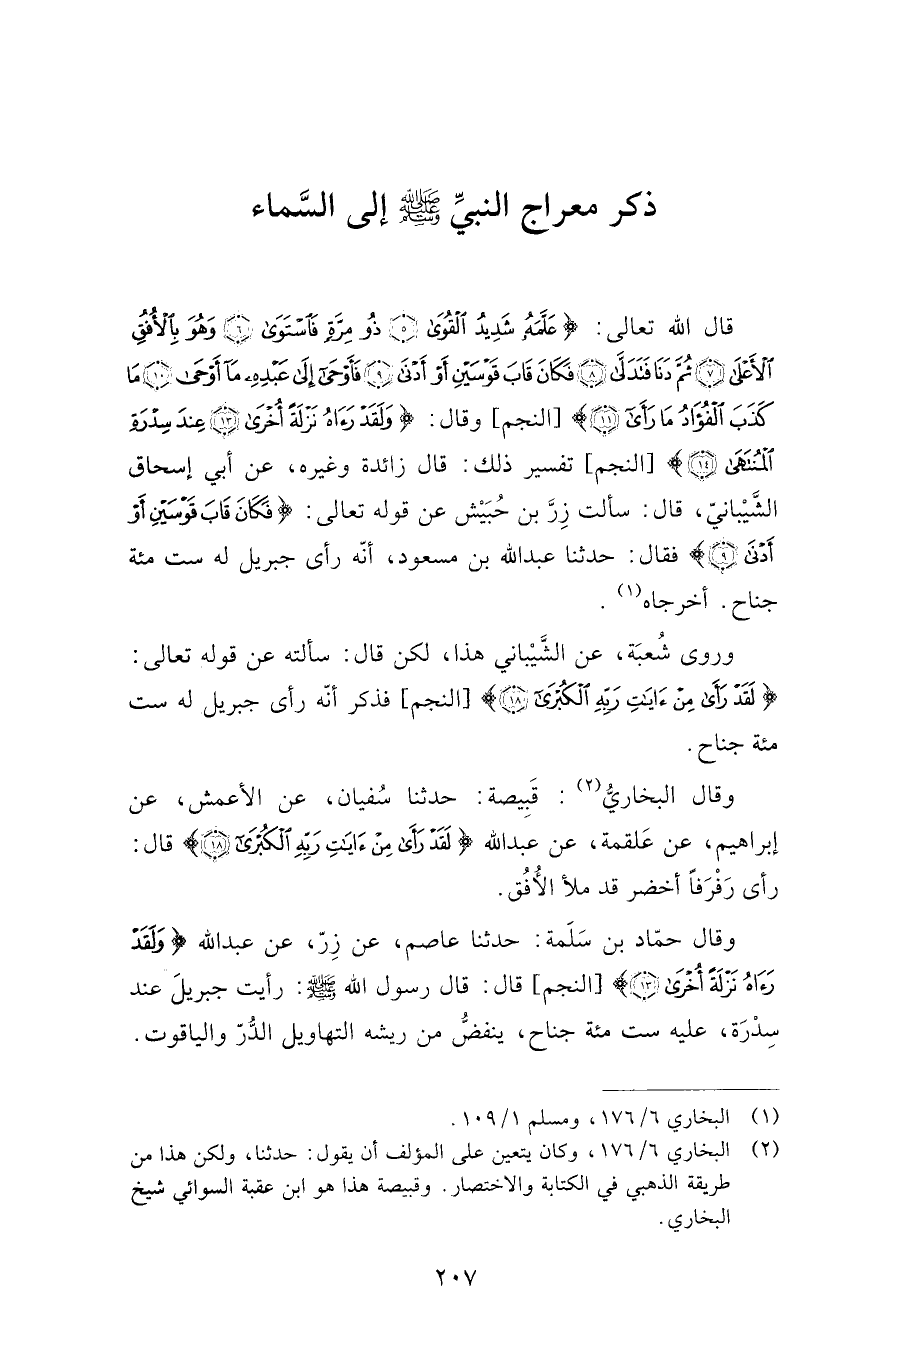 ذكر معراج النبيِّ ﷺ إلى السَّماء
قال الله تعالى: ﴿ عَلَّمَهُۥ شَدِيدُ ٱلْقُوَىٰ ۝٥ ذُو مِرَّةٍ فَٱسْتَوَىٰ ۝٦ وَهُوَ بِٱلْأُفُقِ
ٱلْأَعْلَىٰ ۝٧ ثُمَّ دَنَا فَتَدَلَّىٰ ۝٨ فَكَانَ قَابَ قَوْسَيْنِ أَوْ أَدْنَىٰ ۝٩ فَأَوْحَىٰٓ إِلَىٰ عَبْدِهِۦ مَآ أَوْحَىٰ ۝١٠ مَا
كَذَبَ ٱلْفُؤَادُ مَا رَأَىٰٓ ۝١١﴾ [النجم] وقال: ﴿ وَلَقَدْ رَءَاهُ نَزْلَةً أُخْرَىٰ ۝١٣ عِندَ سِدْرَةِ
ٱلْمُنتَهَىٰ ۝١٤﴾ [النجم] تفسير ذلك: قال زائدة وغيره، عن أبي إسحاق
الشَّيْبانيّ، قال: سألت زِرَّ بن حُبَيْش عن قوله تعالى: ﴿ فَكَانَ قَابَ قَوْسَيْنِ أَوْ
أَدْنَىٰ ۝٩﴾ فقال: حدثنا عبدالله بن مسعود، أنّه رأى جبريل له ست مئة
جناح. أخرجاه(١).
وروى شُعبَة، عن الشَّيْباني هذا، لكن قال: سألته عن قوله تعالى:
﴿ لَقَدْ رَأَىٰ مِنْ ءَايَٰتِ رَبِّهِ ٱلْكُبْرَىٰٓ ۝١٨﴾ [النجم] فذكر أنّه رأى جبريل له ست
مئة جناح.
وقال البخاريُّ(٢): قَبِيصة: حدثنا سُفيان، عن الأعمش، عن
إبراهيم، عن عَلقمة، عن عبدالله ﴿ لَقَدْ رَأَىٰ مِنْ ءَايَٰتِ رَبِّهِ ٱلْكُبْرَىٰٓ ۝١٨﴾ قال:
رأى رَفْرَفاً أخضر قد ملأ الأُفُق.
وقال حمّاد بن سَلَمة: حدثنا عاصم، عن زِرّ، عن عبدالله ﴿ وَلَقَدْ
رَءَاهُ نَزْلَةً أُخْرَىٰ ۝١٣﴾ [النجم] قال: قال رسول الله ﷺ: رأيت جبريلَ عند
سِدْرَة، عليه ست مئة جناح، ينفضُّ من ريشه التهاويل الدُّرّ والياقوت.
(١) البخاري ٦/ ١٧٦، ومسلم ١/ ١٠٩.
(٢) البخاري ٦/ ١٧٦، وكان يتعين على المؤلف أن يقول: حدثنا، ولكن هذا من
طريقة الذهبي في الكتابة والاختصار. وقبيصة هذا هو ابن عقبة السوائي شيخ
البخاري.
٢٠٧